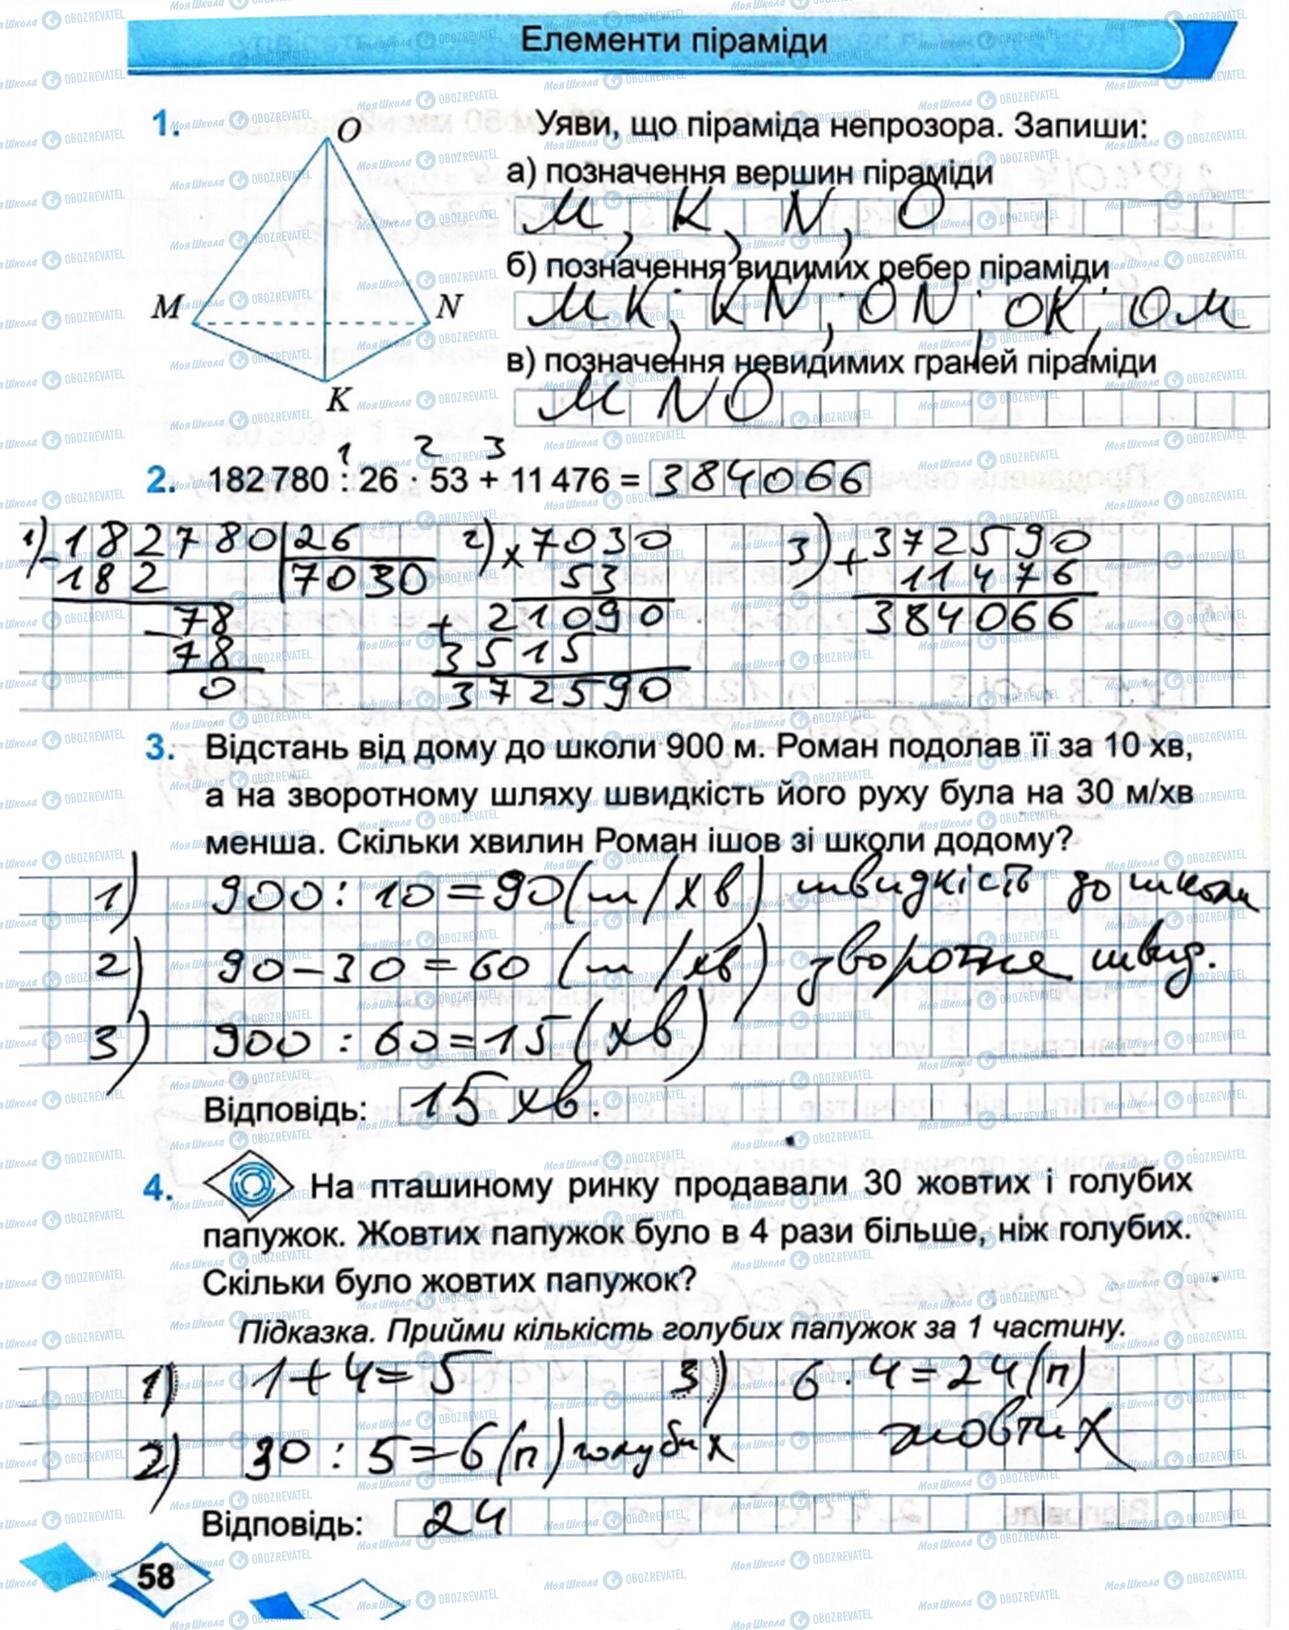 Елементи піраміди
1.
O
M
N
K
Уяви, що піраміда непрозора. Запиши:
а) позначення вершин піраміди
М, К, N, О
б) позначення видимих ребер піраміди
МК; KN; ON; OK; ОМ
в) позначення невидимих граней піраміди
MNO
1 2 3
2. 182 780 : 26 · 53 + 11 476 = 384066
1) 182780 26
182 7030
78
78
0
2) × 7030
53
+ 21090
3515
372590
3) + 372590
11476
384066
3. Відстань від дому до школи 900 м. Роман подолав її за 10 хв,
а на зворотному шляху швидкість його руху була на 30 м/хв
менша. Скільки хвилин Роман ішов зі школи додому?
1) 900 : 10 = 90 (м/хв) швидкість до школи
2) 90 – 30 = 60 (м/хв) зворотня швид.
3) 900 : 60 = 15 (хв)
Відповідь: 15 хв.
4. На пташиному ринку продавали 30 жовтих і голубих
папужок. Жовтих папужок було в 4 рази більше, ніж голубих.
Скільки було жовтих папужок?
Підказка. Прийми кількість голубих папужок за 1 частину.
1) 1 + 4 = 5
2) 30 : 5 = 6 (п) голубих
3) 6 · 4 = 24 (п)
жовтих
Відповідь: 24
58
МояШкола OBOZREVATEL